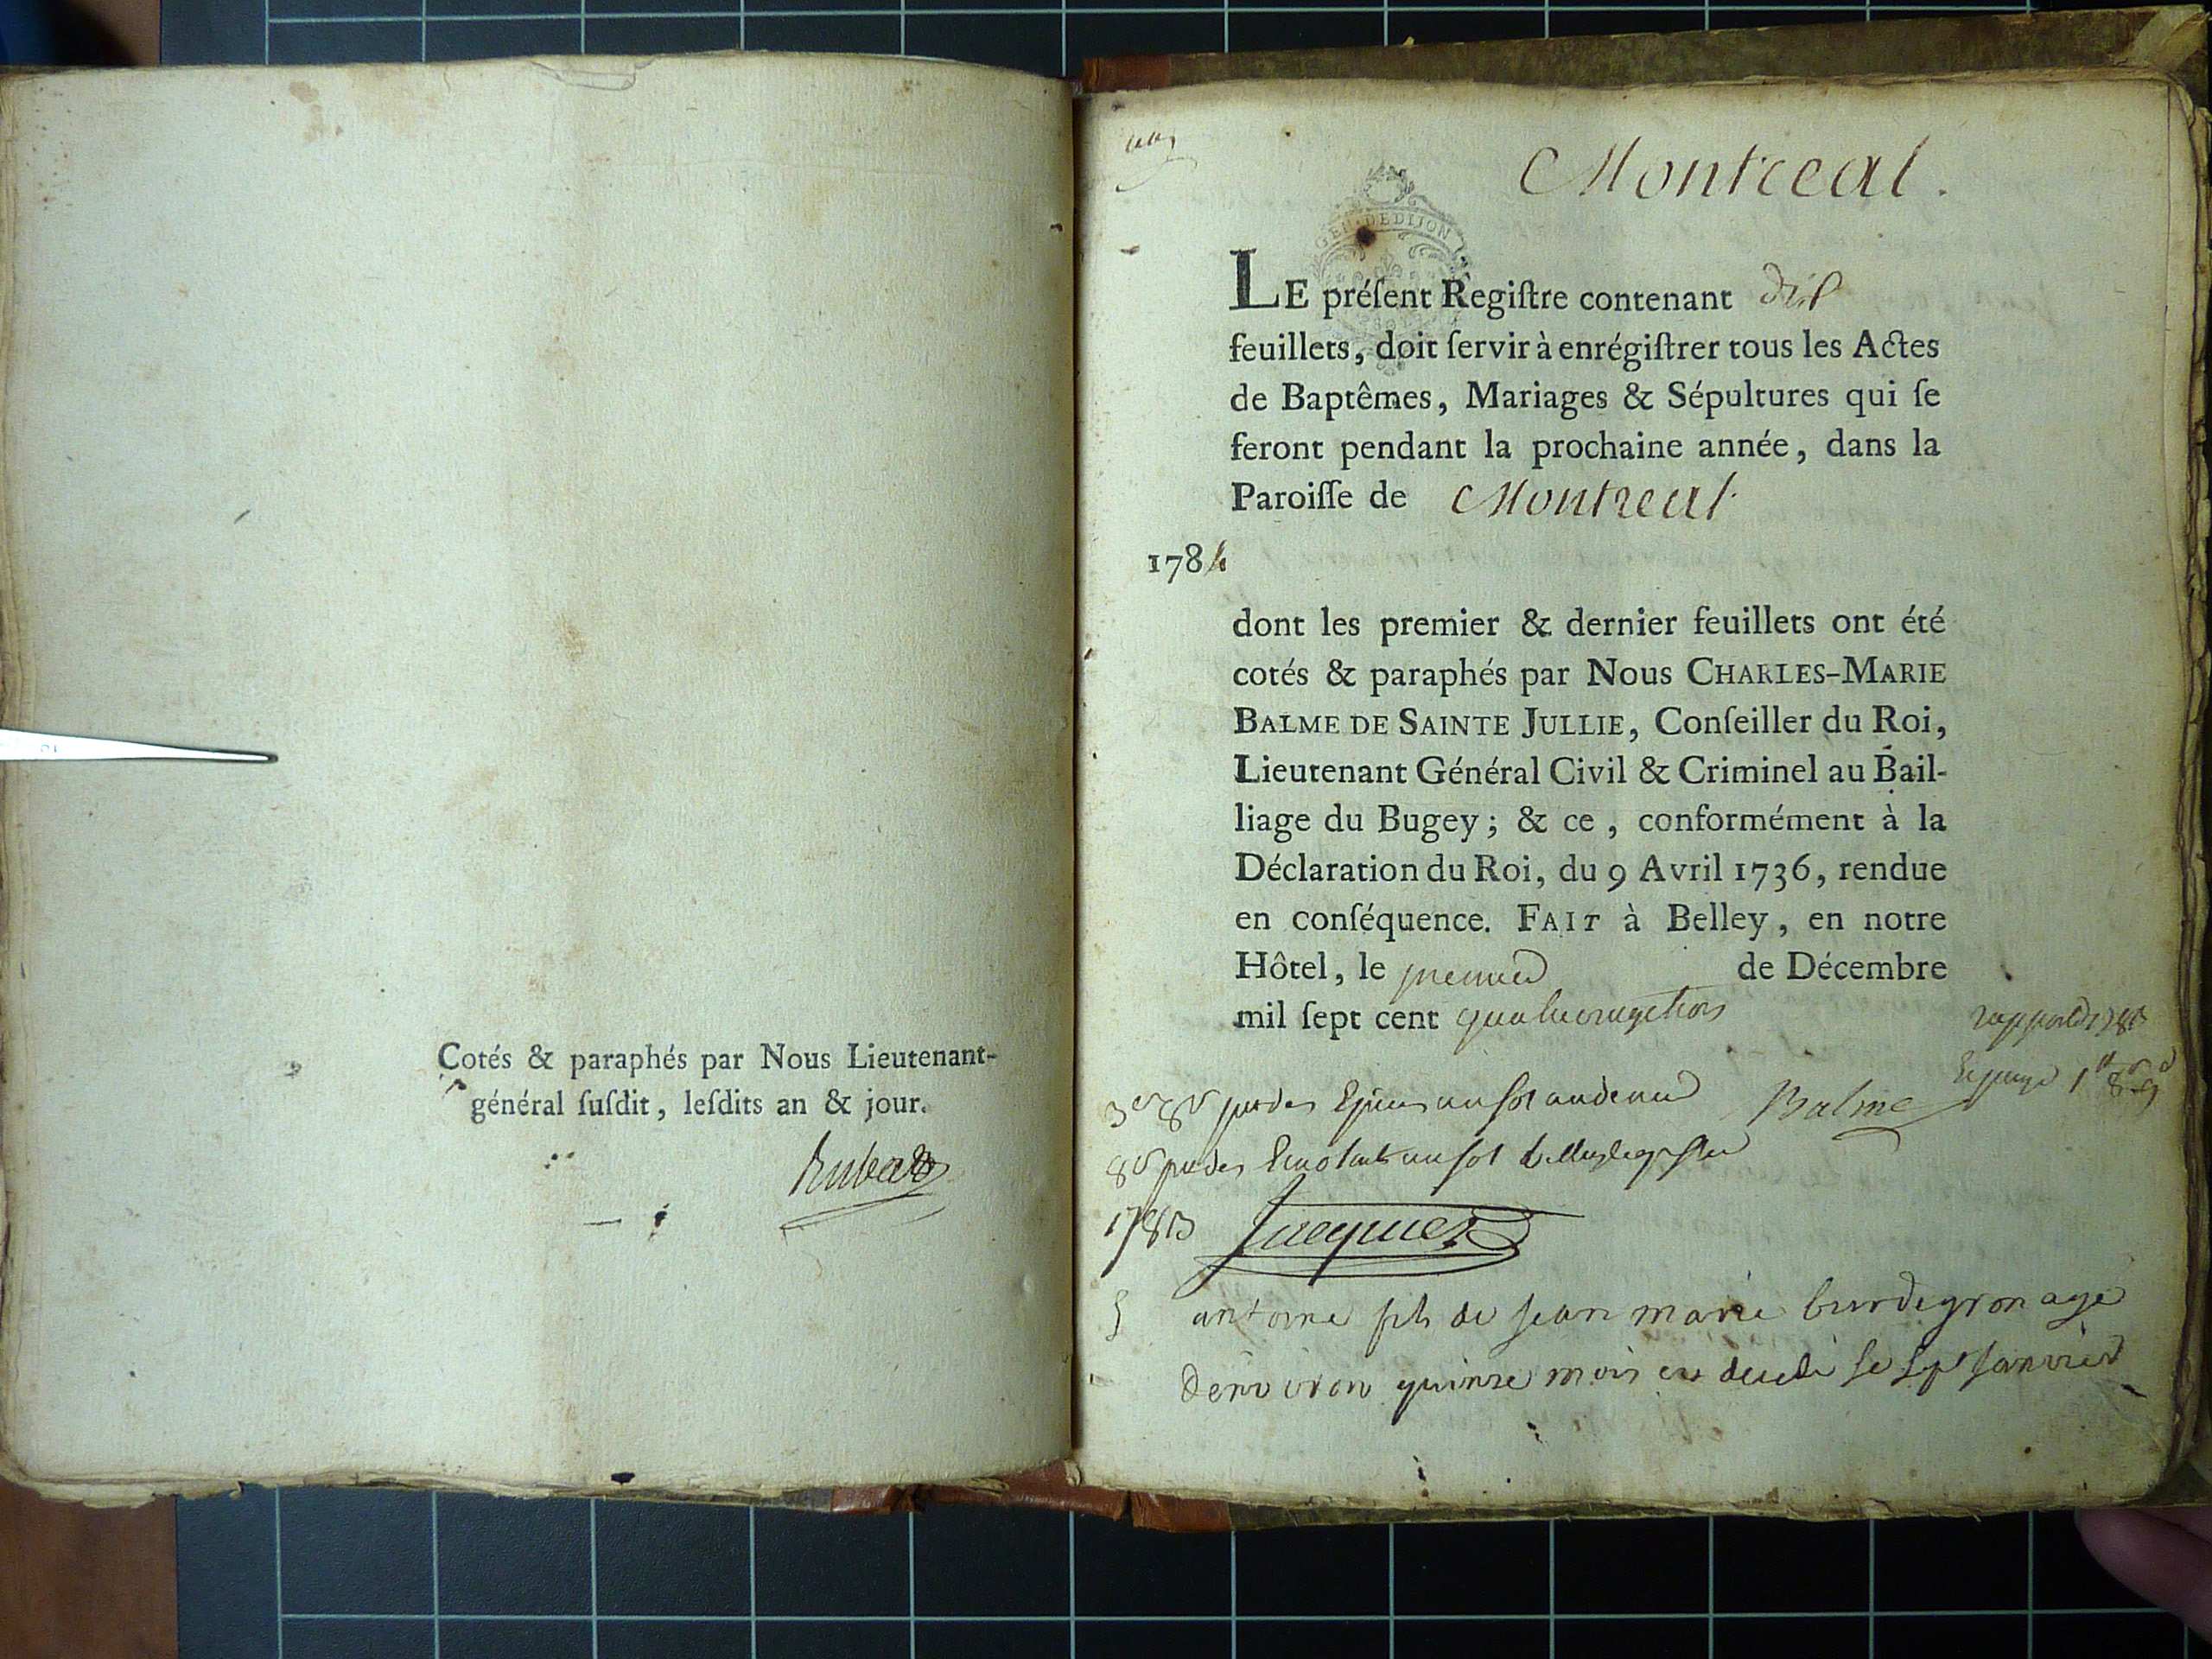 Cotés & paraphés par Nous Lieutenant-
général ſuſdit, leſdits an & jour.
Montreal.
GEN. DE DIJON
LE préſent Regiſtre contenant dix
feuillets, doit ſervir à enrégiſtrer tous les Actes
de Baptêmes, Mariages & Sépultures qui ſe
feront pendant la prochaine année, dans la
Paroiſſe de Montreal
1784
dont les premier & dernier feuillets ont été
cotés & paraphés par Nous CHARLES-MARIE
BALME DE SAINTE JULLIE, Conſeiller du Roi,
Lieutenant Général Civil & Criminel au Bail-
liage du Bugey; & ce, conformément à la
Déclaration du Roi, du 9 Avril 1736, rendue
en conſéquence. FAIT à Belley, en notre
Hôtel, le premier de Décembre
mil ſept cent quatrevingt trois
Balme
1783 Jacquet
antoine fils de jean marie burdegron agé
denviron quinze mois est decedé le sept janvier